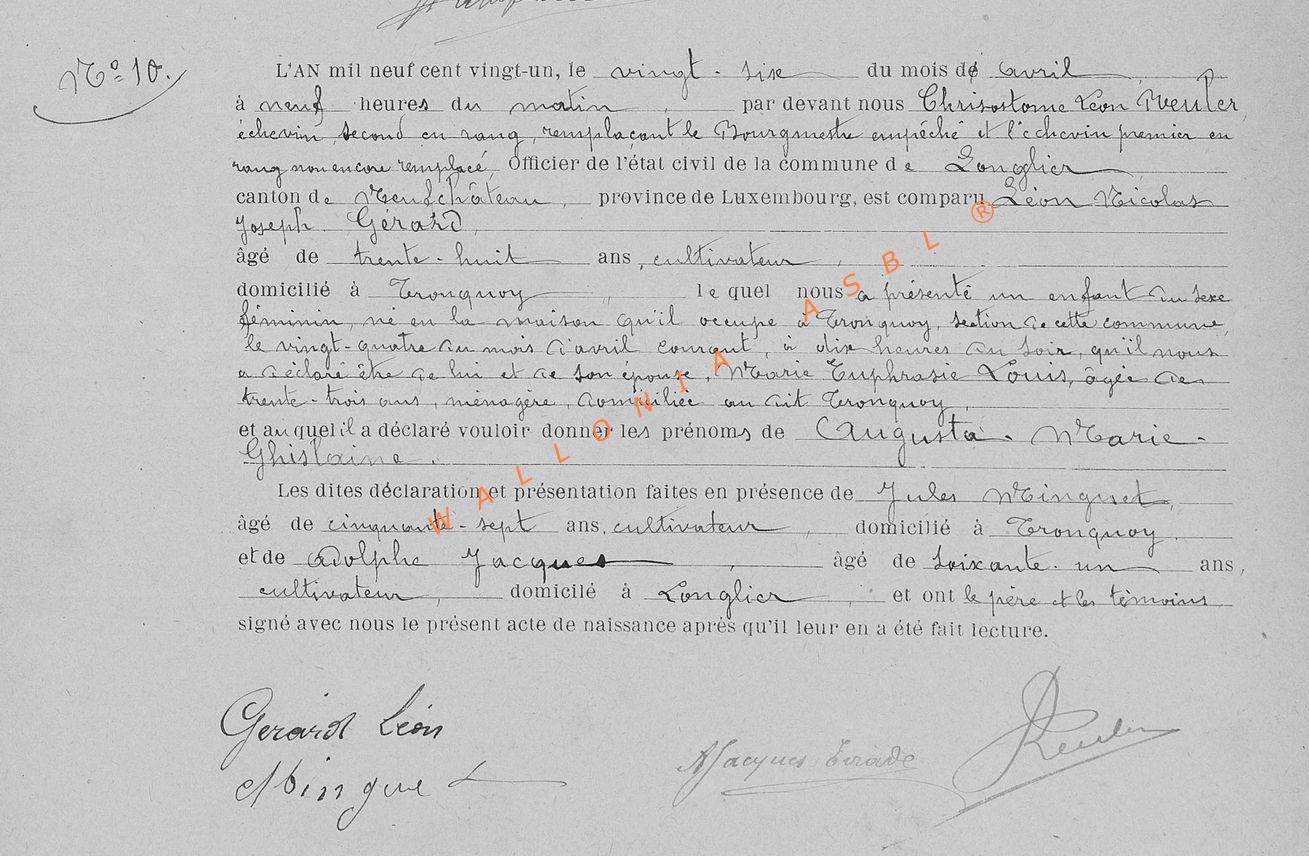 No 10.
L'AN mil neuf cent vingt-un, le vingt-six du mois de avril,
à neuf heures du matin, par devant nous Chrisostome Léon Reuler,
échevin, second en rang, remplaçant le Bourgmestre empêché et l'échevin premier en
rang non encore remplacé, Officier de l'état civil de la commune de Longlier,
canton de Neufchâteau, province de Luxembourg, est comparu Léon Nicolas
Joseph Gérard,
âgé de trente-huit ans, cultivateur,
domicilié à Tronquoy, lequel nous a présenté un enfant du sexe
féminin, né en la maison qu'il occupe à Tronquoy, section de cette commune,
le vingt-quatre du mois d'avril courant, à dix heures du soir, qu'il nous
a déclaré être de lui et de son épouse, Marie Euphrasie Louis, âgée de
trente-trois ans, ménagère, domiciliée au dit Tronquoy,
et auquel il a déclaré vouloir donner les prénoms de Augusta-Marie-
Ghislaine.
Les dites déclaration et présentation faites en présence de Jules Minguet,
âgé de cinquante-sept ans, cultivateur, domicilié à Tronquoy
et de Adolphe Jacques, âgé de soixante-un ans,
cultivateur, domicilé à Longlier, et ont le père et les témoins
signé avec nous le présent acte de naissance après qu'il leur en a été fait lecture.
Gerard Léon
Minguet
AJacques
Reuler
WALLONIA ASBL ®